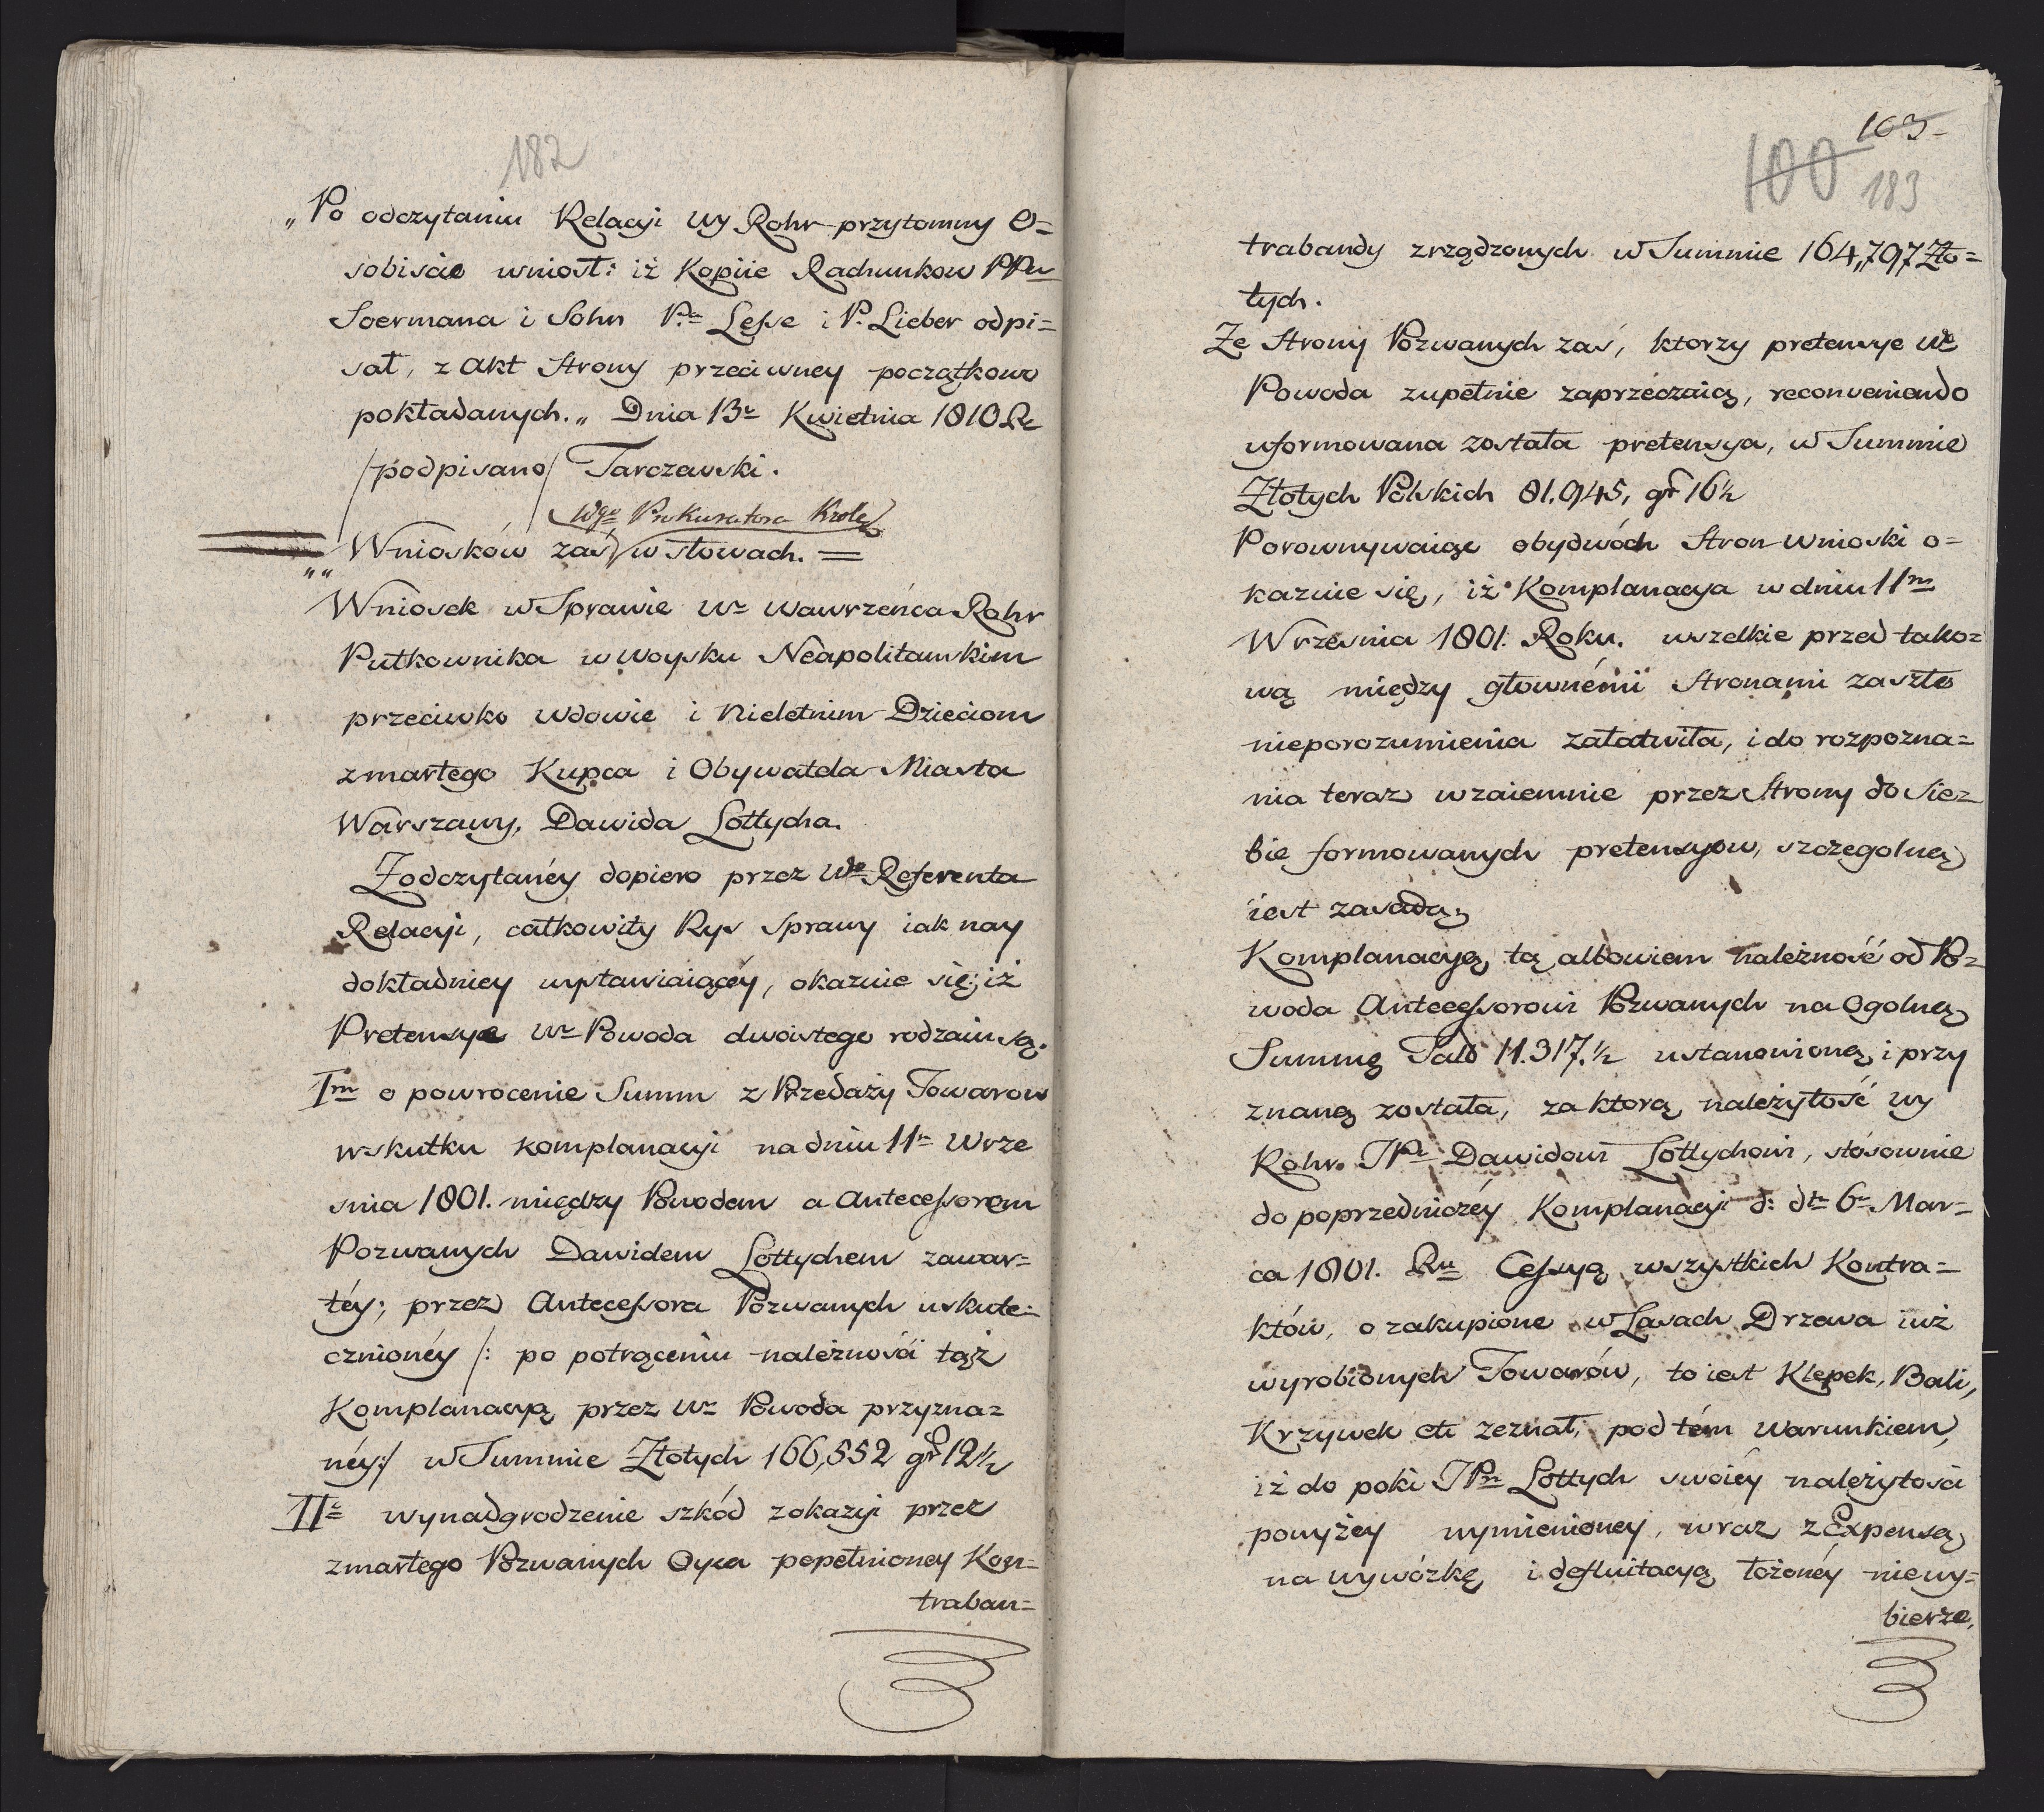 182
„Po odczytaniu Relacyi Wy Rohr przytomny O=
sobiscie wniosł: iż Kopiie Rachunkow PPw
Soermana i Sohn P.a Lesse i P. Lieber odpi=
sał, z Akt Strony przeciwney początkowo
pokładanych.„ Dnia 13e Kwietnia 1810 Re
/podpisano/ Tarczewski.
Wgo Prokuratora Krolez
Wnioskow zaś w słowach. =
„„
Wniosek w Sprawie Wo Wawrzeńca Rohr
Pułkownika w Woysku Neapolitanskim
przeciwko Wdowie i Nieletnim Dzieciom
zmarłego Kupca i Obywatela Miasta
Warszawy, Dawida Lottycha.
Z odczytanéy dopiero przez Wgo Referenta
Relacyi, całkowity Rys Sprawy iak nay
dokładniey wystawiaiącéy, okazuie się; iż
Pretensye Wo Powoda dwoistego rodzaiu są.
Imo o powrocenie Summ z Przedaży Towarow
w skutku komplanacyi na dniu 11m Wrze
snia 1801. między Powodem a Antecessorem
Pozwanych Dawidem Lottychem zawar=
téy; przez Antecessora Pozwanych uskute=
cznionéy /: po potrąceniu należnosci tąż
Komplanacyą przez Wo Powoda przyzna=
néy:/ w Summie Złotych 166,552 gr 12½
IIe wynadgrodzenie szkód z okazyi przez
zmarłego Pozwanych Oyca popełnioney Kon=
traban=
163-
100
183
trabandy zrządzonych w Summie 164,797 Zło=
tych.
Ze Strony Pozwanych zaś, ktorzy pretensye Wo
Powoda zupełnie zaprzéczaią, reconveniendo
uformowana została pretensya, w Summie
Złotych Polskich 81.945, gr 16½
Porownywaiąc obydwóch Stron wnioski o=
kazuie się, iż Komplanacya w dniu 11m
Wrzesnia 1801. Roku. wszelkie przed tako=
wą między głownémi Stronami zaszłe
nieporozumienia załatwiła, i do rozpozna=
nia teraz wzaiemnie przez Strony do Sie=
bie formowanych pretensyow, szczegolną
iest zasadą;
Komplanacyą tą albowiem należność od Po=
woda Antecessorowi Pozwanych na Ogolną
Summę Talo 11.317.½ ustanowioną i przy
znaną została, za ktorą należytość Wy
Rohr JPu Dawidowi Lottychowi, stósownie
do poprzedniczéy Komplanacyi d: dto 6o Mar=
ca 1801. Ru Cessyą wszystkich Kontra=
któw, o zakupione w Lasach Drzewa iuż
wyrobionych Towarów, to iest Klepek, Bali,
Krzywek etc zeznał, pod tém warunkiem,
iż do poki JPn Lottych swoiéy należytosci
powyżey wymienioney, wraz z Expensą
na wywózkę i defluitacyą łożonéy niewy=
bierze,